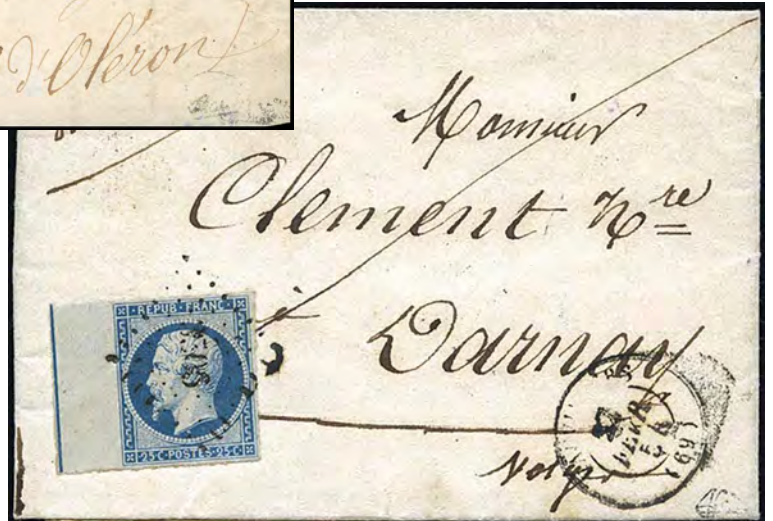 d'Oléron
Monsieur
Clement Nre
à
Darnay
Vosges
REPUB·FRANC
25 C·POSTES·25 C
(69)